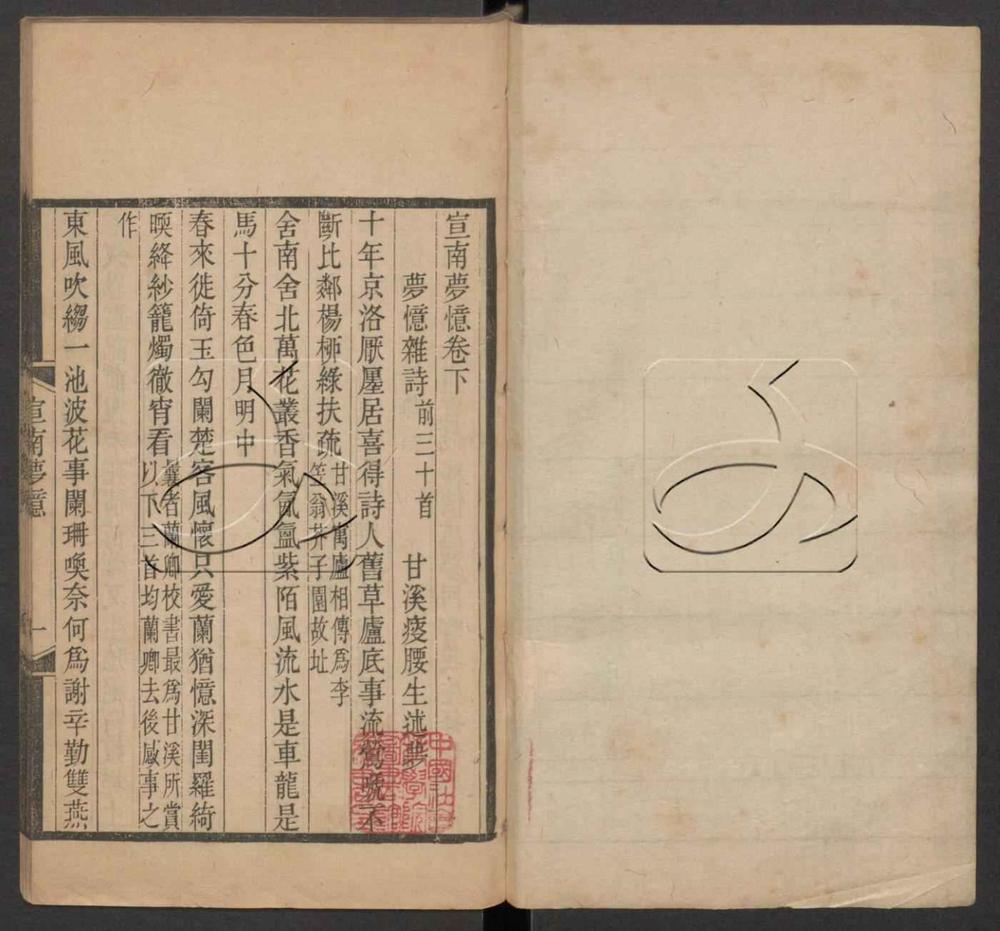 宣南夢憶卷下
夢憶雜詩前三十首 甘溪瘦腰生述夢
十年京洛厭塵居喜得詩人舊草廬底事流鶯號不
斷比鄰楊栁綠扶疏甘溪寓廬相傳爲李笠翁芥子園故址
舍南舍北萬花叢香氣氤氳紫陌風流水是車龍是
馬十分春色月明中
春來徙倚玉勾闌楚客風懷只愛蘭猶憶深閨羅綺
㬉絳紗籠燭徹宵看曩者蘭卿校書最爲甘溪所賞以下三首均蘭卿去後感事之
作
東風吹縐一池波花事闌珊喚奈何爲謝辛勤雙燕
宣南夢憶
一